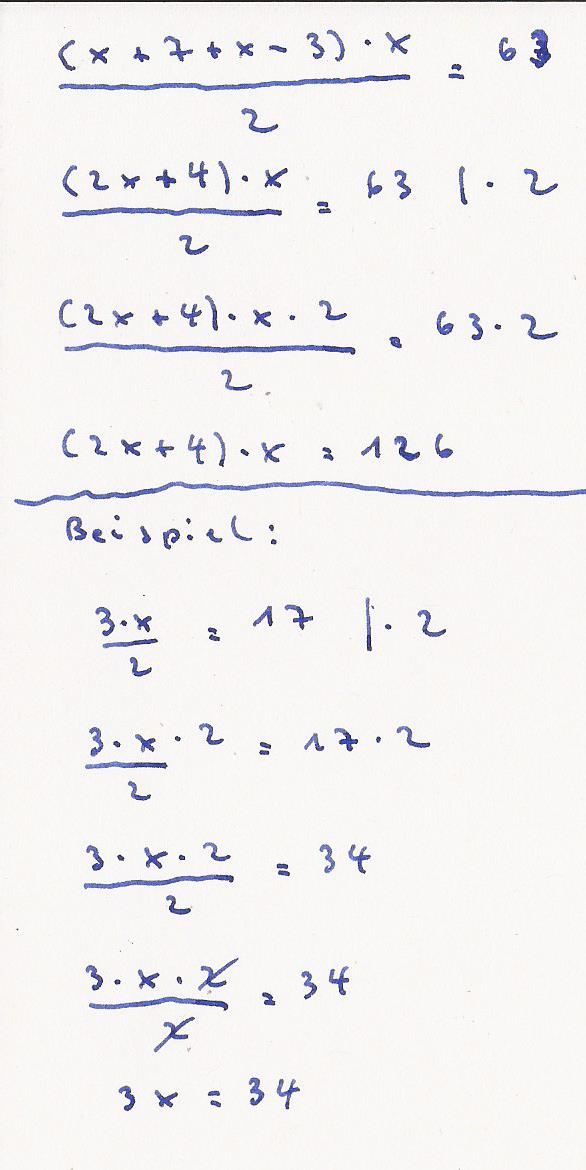 (x + 7 + x - 3) · x / 2 = 63
(2x + 4) · x / 2 = 63 | · 2
(2x + 4) · x · 2 / 2 = 63 · 2
(2x + 4) · x = 126
Beispiel:
3 · x / 2 = 17 | · 2
3 · x / 2 · 2 = 17 · 2
3 · x · 2 / 2 = 34
3 · x · 2 / 2 = 34
3x = 34